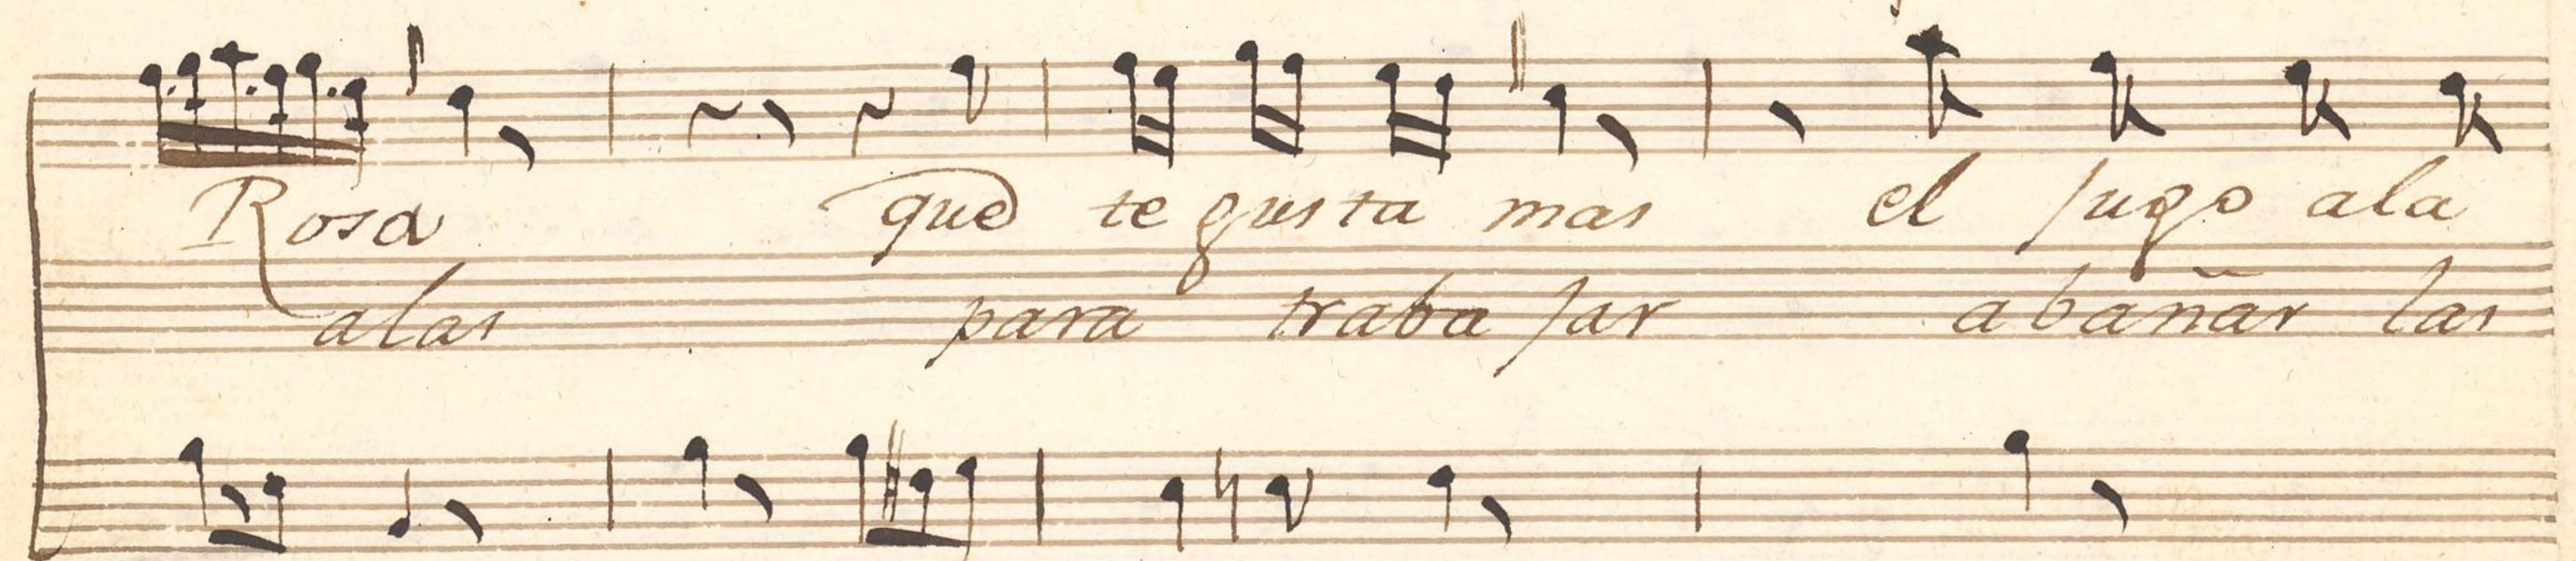 Rosa que te gusta mas el jugo ala
alas para traba jar a bañar las